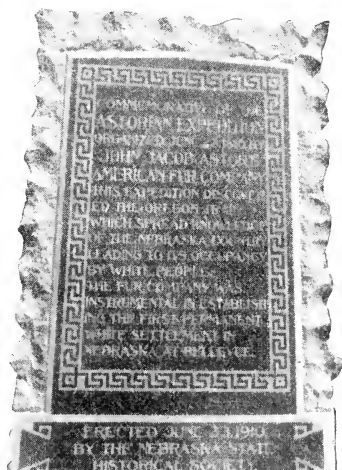 COMMEMORATIVE OF THE
ASTORIAN EXPEDITION
ORGANIZED JUNE
JOHN JACOB ASTOR
AMERICAN FUR COMPANY
THIS EXPEDITION DISCOVER
ED THE OREGON TRAIL
WHICH SPREAD KNOWLEDGE
OF THE NEBRASKA COUNTRY
LEADING TO ITS OCCUPANCY
BY WHITE PEOPLE
THE FUR COMPANY WAS
INSTRUMENTAL IN ESTABLISH
ING THE FIRST PERMANENT
WHITE SETTLEMENT IN
NEBRASKA AT BELLEVUE.
ERECTED JUNE 23, 1910
BY THE NEBRASKA STATE
HISTORICAL SOCIETY